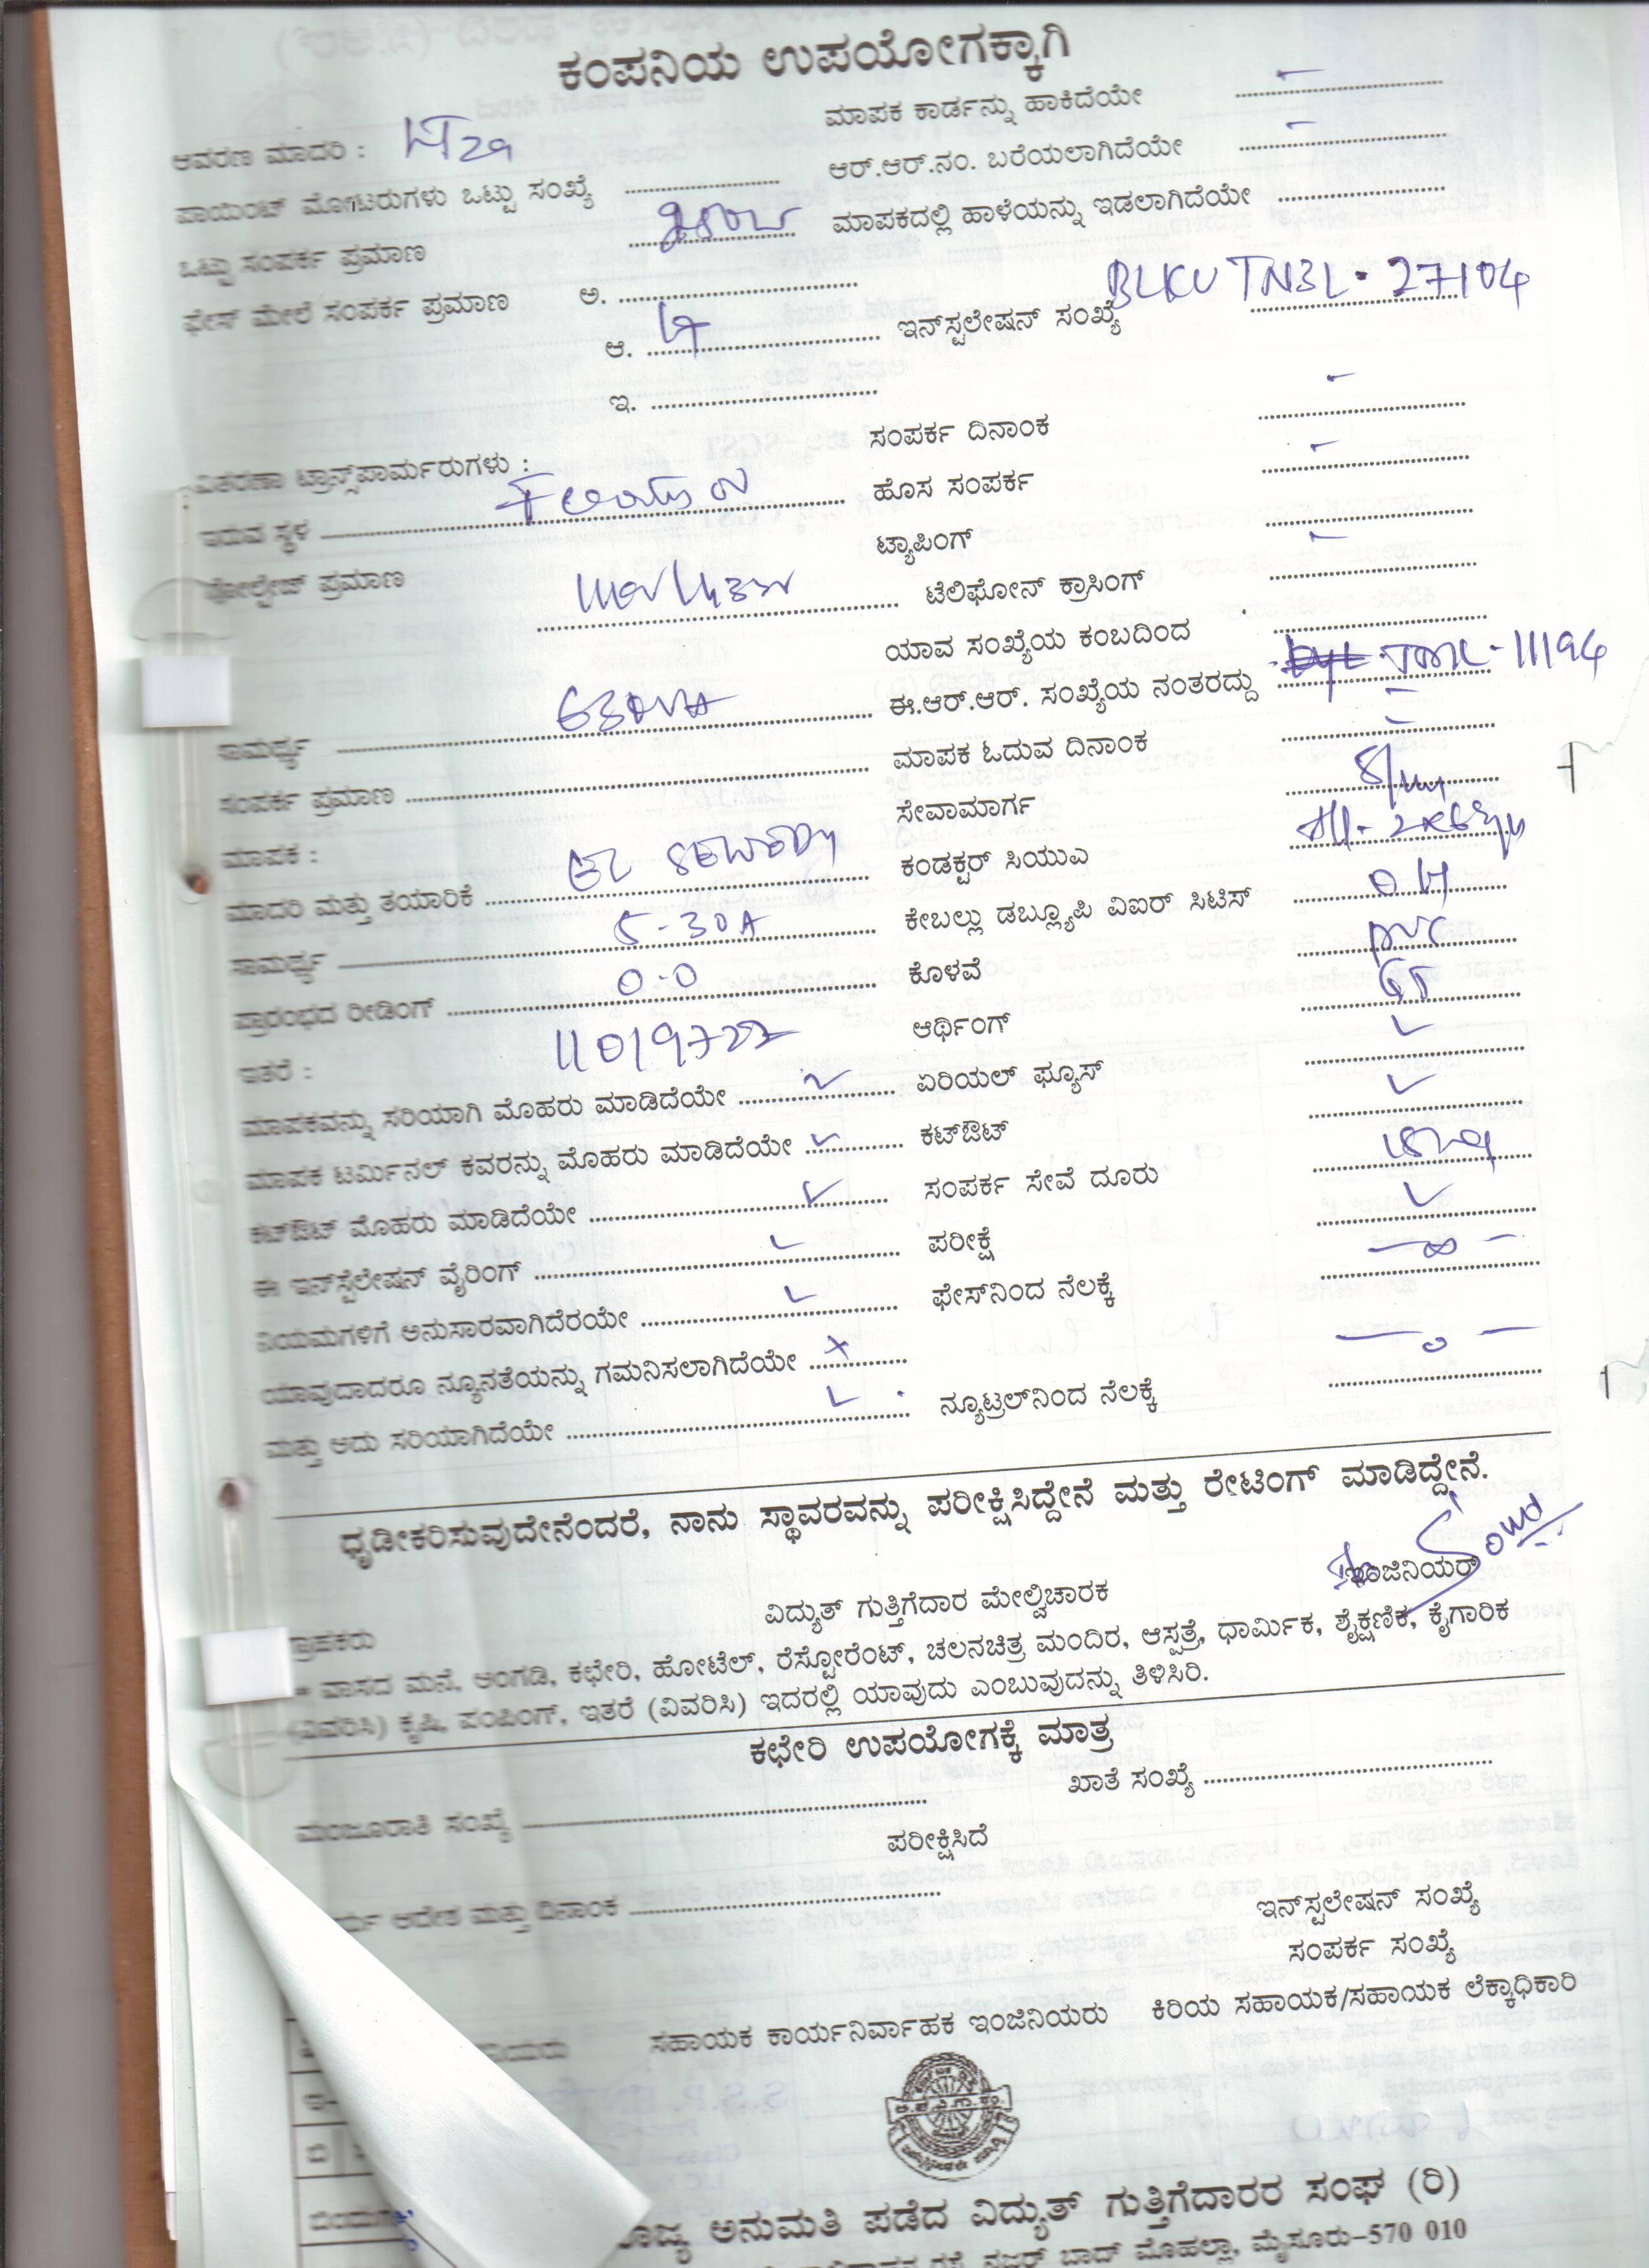 ಕಂಪನಿಯ ಉಪಯೋಗಕ್ಕಾಗಿ
ಮಾಪಕ ಕಾರ್ಡನ್ನು ಹಾಕಿದೆಯೇ
ಆವರಣ ಮಾದರಿ :
ಆರ್.ಆರ್.ನಂ. ಬರೆಯಲಾಗಿದೆಯೇ
ಪಾಯಿಂಟ್ ಮೋಟರುಗಳು ಒಟ್ಟು ಸಂಖ್ಯೆ
ಮಾಪಕದಲ್ಲಿ ಹಾಳೆಯನ್ನು ಇಡಲಾಗಿದೆಯೇ
ಒಟ್ಟು ಸಂಪರ್ಕ ಪ್ರಮಾಣ
ಫೇಸ್ ಮೇಲೆ ಸಂಪರ್ಕ ಪ್ರಮಾಣ ಅ.
ಆ. ಇನ್‌ಸ್ಟಲೇಷನ್ ಸಂಖ್ಯೆ 27104
ಇ.
ಸಂಪರ್ಕ ದಿನಾಂಕ
ವಿತರಣಾ ಟ್ರಾನ್ಸ್‌ಪಾರ್ಮರುಗಳು :
ಇರುವ ಸ್ಥಳ ಹೊಸ ಸಂಪರ್ಕ
ಟ್ಯಾಪಿಂಗ್
ವೋಲ್ಟೇಜ್ ಪ್ರಮಾಣ ಟೆಲಿಫೋನ್ ಕ್ರಾಸಿಂಗ್
ಯಾವ ಸಂಖ್ಯೆಯ ಕಂಬದಿಂದ
ಸಾಮರ್ಥ್ಯ ಈ.ಆರ್.ಆರ್. ಸಂಖ್ಯೆಯ ನಂತರದ್ದು 11194
ಸಂಪರ್ಕ ಪ್ರಮಾಣ ಮಾಪಕ ಓದುವ ದಿನಾಂಕ
ಮಾಪಕ : ಸೇವಾಮಾರ್ಗ
ಮಾದರಿ ಮತ್ತು ತಯಾರಿಕೆ ಕಂಡಕ್ಟರ್ ಸಿಯುಎ
ಸಾಮರ್ಥ್ಯ 5-30A ಕೇಬಲ್ಲು ಡಬ್ಲ್ಯೂಪಿ ವಿಐಆರ್ ಸಿಟಿಸ್ OH
ಪ್ರಾರಂಭದ ರೀಡಿಂಗ್ 0-0 ಕೊಳವೆ PVC
ಇತರೆ : 11019727 ಆರ್ಥಿಂಗ್
ಮಾಪಕವನ್ನು ಸರಿಯಾಗಿ ಮೊಹರು ಮಾಡಿದೆಯೇ ಏರಿಯಲ್ ಫ್ಯೂಸ್
ಮಾಪಕ ಟರ್ಮಿನಲ್ ಕವರನ್ನು ಮೊಹರು ಮಾಡಿದೆಯೇ ಕಟ್‌ಔಟ್
ಕಟ್‌ಔಟ್ ಮೊಹರು ಮಾಡಿದೆಯೇ ಸಂಪರ್ಕ ಸೇವೆ ದೂರು
ಈ ಇನ್‌ಸ್ಪೆಲೇಷನ್ ವೈರಿಂಗ್ ಪರೀಕ್ಷೆ
ನಿಯಮಗಳಿಗೆ ಅನುಸಾರವಾಗಿದೆರಯೇ ಫೇಸ್‌ನಿಂದ ನೆಲಕ್ಕೆ
ಯಾವುದಾದರೂ ನ್ಯೂನತೆಯನ್ನು ಗಮನಿಸಲಾಗಿದೆಯೇ
ಮತ್ತು ಅದು ಸರಿಯಾಗಿದೆಯೇ ನ್ಯೂಟ್ರಲ್‌ನಿಂದ ನೆಲಕ್ಕೆ
ಧೃಡೀಕರಿಸುವುದೇನೆಂದರೆ, ನಾನು ಸ್ಥಾವರವನ್ನು ಪರೀಕ್ಷಿಸಿದ್ದೇನೆ ಮತ್ತು ರೇಟಿಂಗ್ ಮಾಡಿದ್ದೇನೆ.
ಇಂಜಿನಿಯರ್
ವಿದ್ಯುತ್ ಗುತ್ತಿಗೆದಾರ ಮೇಲ್ವಿಚಾರಕ
ಗ್ರಾಹಕರು
* ವಾಸದ ಮನೆ, ಅಂಗಡಿ, ಕಛೇರಿ, ಹೋಟೆಲ್, ರೆಸ್ಟೋರೆಂಟ್, ಚಲನಚಿತ್ರ ಮಂದಿರ, ಆಸ್ಪತ್ರೆ, ಧಾರ್ಮಿಕ, ಶೈಕ್ಷಣಿಕ, ಕೈಗಾರಿಕ
(ವಿವರಿಸಿ) ಕೃಷಿ, ಪಂಪಿಂಗ್, ಇತರೆ (ವಿವರಿಸಿ) ಇದರಲ್ಲಿ ಯಾವುದು ಎಂಬುವುದನ್ನು ತಿಳಿಸಿರಿ.
ಕಛೇರಿ ಉಪಯೋಗಕ್ಕೆ ಮಾತ್ರ
ಖಾತೆ ಸಂಖ್ಯೆ
ಮಂಜೂರಾತಿ ಸಂಖ್ಯೆ
ಪರೀಕ್ಷಿಸಿದೆ
ಆದೇಶ ಮತ್ತು ದಿನಾಂಕ
ಇನ್‌ಸ್ಟಲೇಷನ್ ಸಂಖ್ಯೆ
ಸಂಪರ್ಕ ಸಂಖ್ಯೆ
ಸಹಾಯಕ ಕಾರ್ಯನಿರ್ವಾಹಕ ಇಂಜಿನಿಯರು ಕಿರಿಯ ಸಹಾಯಕ/ಸಹಾಯಕ ಲೆಕ್ಕಾಧಿಕಾರಿ
ಅನುಮತಿ ಪಡೆದ ವಿದ್ಯುತ್ ಗುತ್ತಿಗೆದಾರರ ಸಂಘ (ರಿ)
ಮೊಹಲ್ಲಾ, ಮೈಸೂರು-570 010